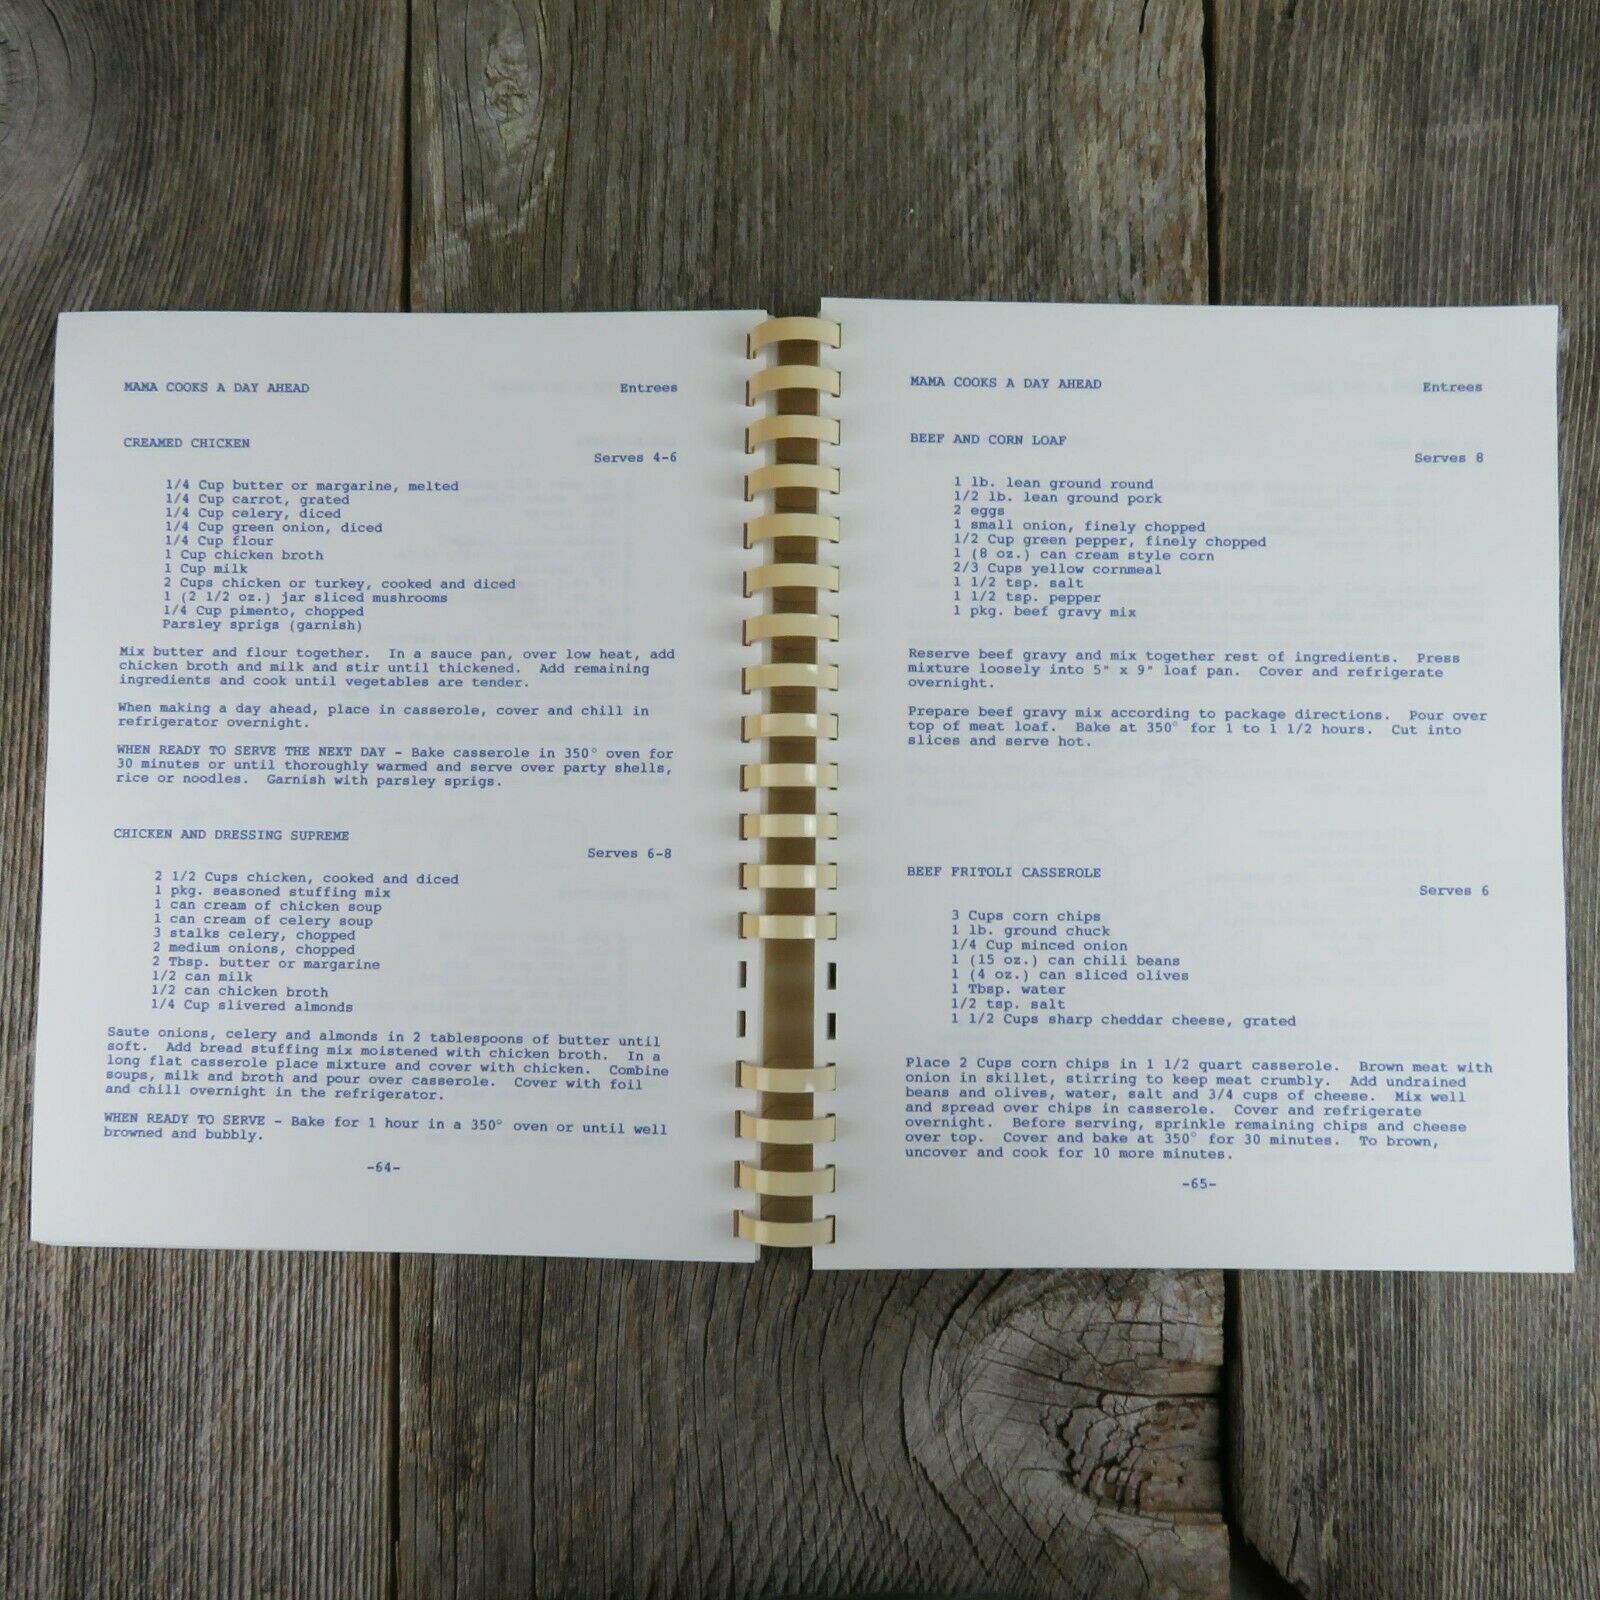 MAMA COOKS A DAY AHEAD Entrees
CREAMED CHICKEN
Serves 4-6
1/4 Cup butter or margarine, melted
1/4 Cup carrot, grated
1/4 Cup celery, diced
1/4 Cup green onion, diced
1/4 Cup flour
1 Cup chicken broth
1 Cup milk
2 Cups chicken or turkey, cooked and diced
1 (2 1/2 oz.) jar sliced mushrooms
1/4 Cup pimento, chopped
Parsley sprigs (garnish)
Mix butter and flour together. In a sauce pan, over low heat, add
chicken broth and milk and stir until thickened. Add remaining
ingredients and cook until vegetables are tender.
When making a day ahead, place in casserole, cover and chill in
refrigerator overnight.
WHEN READY TO SERVE THE NEXT DAY - Bake casserole in 350° oven for
30 minutes or until thoroughly warmed and serve over party shells,
rice or noodles. Garnish with parsley sprigs.
CHICKEN AND DRESSING SUPREME
Serves 6-8
2 1/2 Cups chicken, cooked and diced
1 pkg. seasoned stuffing mix
1 can cream of chicken soup
1 can cream of celery soup
3 stalks celery, chopped
2 medium onions, chopped
2 Tbsp. butter or margarine
1/2 can milk
1/2 can chicken broth
1/4 Cup slivered almonds
Saute onions, celery and almonds in 2 tablespoons of butter until
soft. Add bread stuffing mix moistened with chicken broth. In a
long flat casserole place mixture and cover with chicken. Combine
soups, milk and broth and pour over casserole. Cover with foil
and chill overnight in the refrigerator.
WHEN READY TO SERVE - Bake for 1 hour in a 350° oven or until well
browned and bubbly.
-64-
MAMA COOKS A DAY AHEAD Entrees
BEEF AND CORN LOAF
Serves 8
1 lb. lean ground round
1/2 lb. lean ground pork
2 eggs
1 small onion, finely chopped
1/2 Cup green pepper, finely chopped
1 (8 oz.) can cream style corn
2/3 Cups yellow cornmeal
1 1/2 tsp. salt
1 1/2 tsp. pepper
1 pkg. beef gravy mix
Reserve beef gravy and mix together rest of ingredients. Press
mixture loosely into 5" x 9" loaf pan. Cover and refrigerate
overnight.
Prepare beef gravy mix according to package directions. Pour over
top of meat loaf. Bake at 350° for 1 to 1 1/2 hours. Cut into
slices and serve hot.
BEEF FRITOLI CASSEROLE
Serves 6
3 Cups corn chips
1 lb. ground chuck
1/4 Cup minced onion
1 (15 oz.) can chili beans
1 (4 oz.) can sliced olives
1 Tbsp. water
1/2 tsp. salt
1 1/2 Cups sharp cheddar cheese, grated
Place 2 Cups corn chips in 1 1/2 quart casserole. Brown meat with
onion in skillet, stirring to keep meat crumbly. Add undrained
beans and olives, water, salt and 3/4 cups of cheese. Mix well
and spread over chips in casserole. Cover and refrigerate
overnight. Before serving, sprinkle remaining chips and cheese
over top. Cover and bake at 350° for 30 minutes. To brown,
uncover and cook for 10 more minutes.
-65-